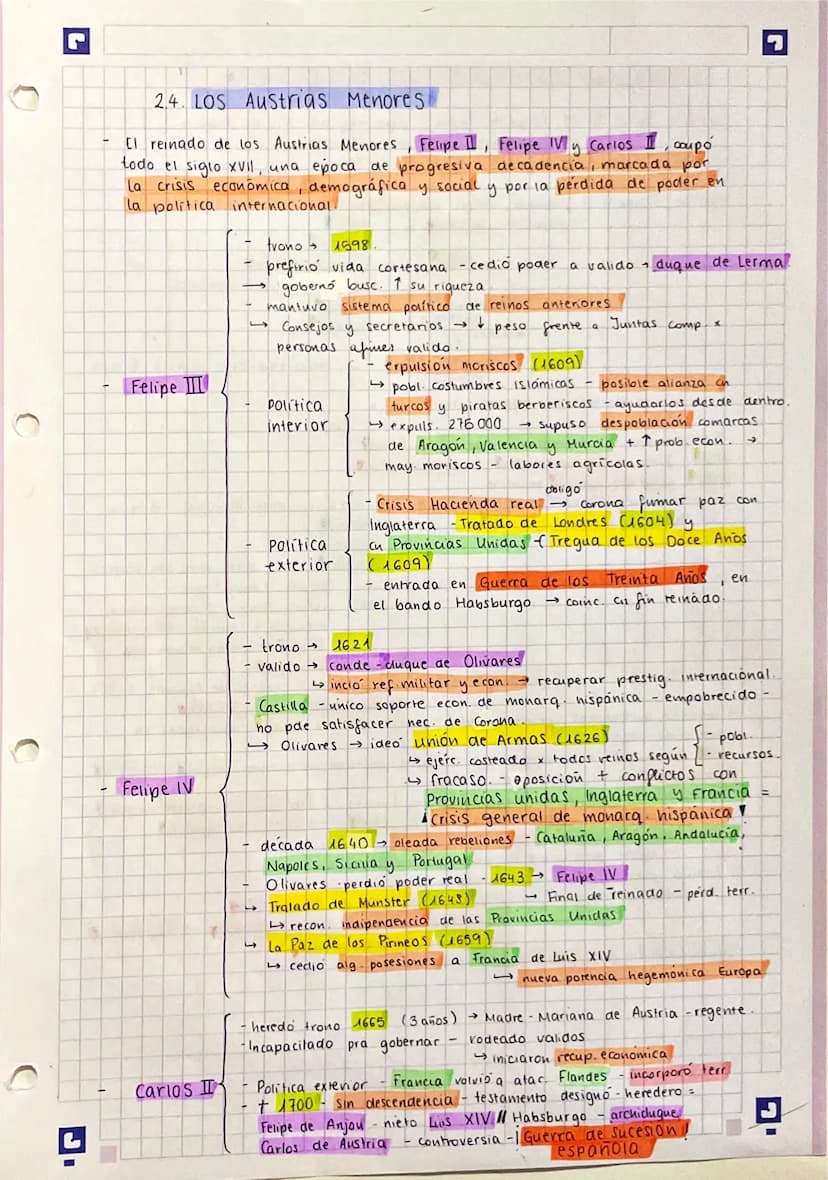 2.4. LOS AUSTRIAS MENORES
- El reinado de los Austrias Menores, Felipe II, Felipe IV y Carlos II, ocupó
todo el siglo XVII, una época de progresiva decadencia, marcada por
la crisis económica, demográfica y social y por la pérdida de poder en
la política internacional.
- Felipe III
- trono → 1598.
- prefirió vida cortesana - cedió poder a valido → duque de Lerma
→ gobernó busc. ↑ su riqueza
- mantuvo sistema político de reinos anteriores
↳ Consejos y secretarios → ↓ peso frente a Juntas comp. x
personas afines valido.
- Política
interior
- expulsión moriscos (1609)
↳ pobl. costumbres islámicas - posible alianza cn
turcos y piratas berberiscos - ayudarlos desde dentro.
↳ expuls. 275000 → supuso despoblación comarcas
de Aragón, Valencia y Murcia + ↑ prob. econ. →
may. moriscos - labores agrícolas.
- Política
exterior
obligó
- Crisis Hacienda real → corona fumar paz con
Inglaterra - Tratado de Londres (1604) y
cn Provincias Unidas - (Tregua de los Doce Años
(1609)
- entrada en Guerra de los Treinta Años, en
el bando Habsburgo → coinc. cn fin reinado.
- Felipe IV
- trono → 1621
- valido → conde-duque de Olivares
↳ inció ref. militar y econ. → recuperar prestig. internacional.
- Castilla - único soporte econ. de monarq. hispánica - empobrecido -
no pde satisfacer nec. de Corona.
↳ Olivares → ideó Unión de Armas (1626)
↳ ejérc. costeado x todos reinos según
- pobl.
- recursos.
↳ fracaso. - oposición + conflictos con
Provincias unidas, Inglaterra y Francia =
¡Crisis general de monarq. hispánica!
- década 1640 → oleada rebeliones - Cataluña, Aragón, Andalucía,
Napoles, Sicilia y Portugal
- Olivares - perdió poder real - 1643 → Felipe IV
→ Final de reinado - pérd. terr.
↳ Tratado de Munster (1648)
↳ recon. indipendencia de las Provincias Unidas
↳ La Paz de los Pirineos (1659)
↳ cedió alg. posesiones a Francia de Luis XIV
↳ nueva potencia hegemónica Europa
- Carlos II
- heredó trono 1665 (3 años) → Madre - Mariana de Austria - regente.
- Incapacitado pra gobernar - rodeado validos
↳ iniciaron recup. económica
- Política exterior - Francia volvió a atac. Flandes - incorporó terr
- † 1700 - sin descendencia - testamento designó - heredero =
Felipe de Anjou - nieto Luis XIV // Habsburgo - archiduque
Carlos de Austria - controversia - ¡Guerra de sucesión
española!